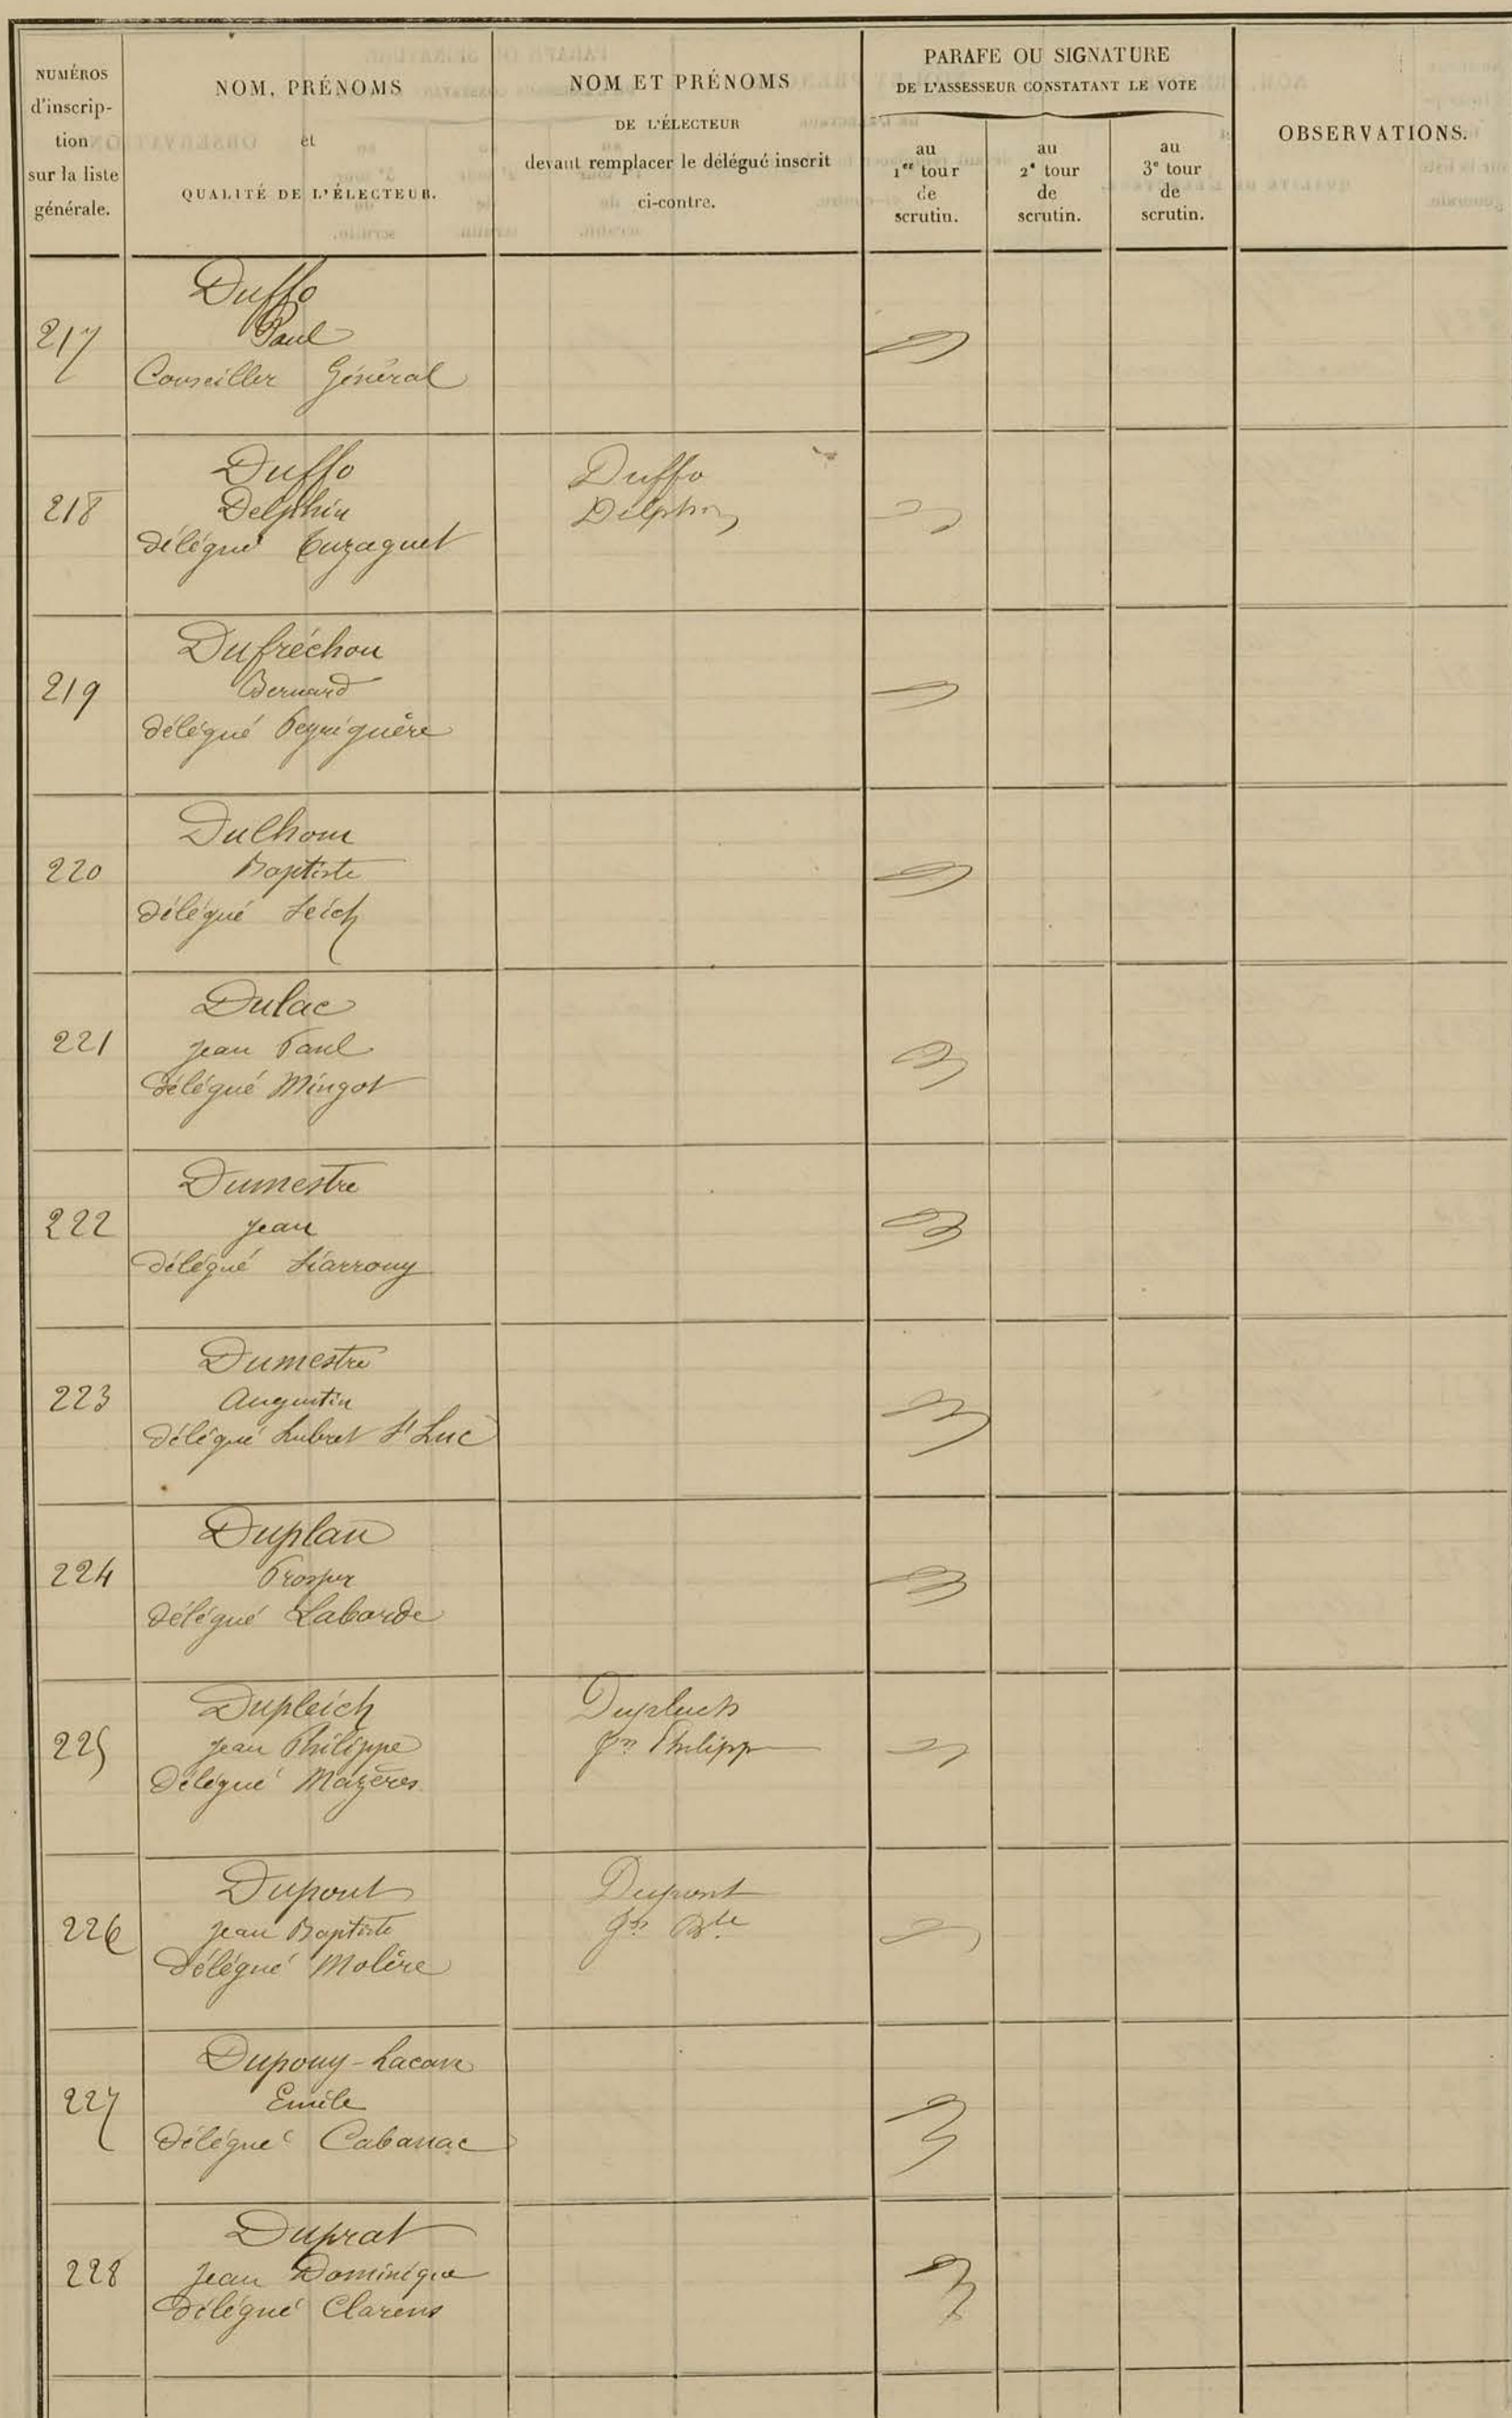 NUMÉROS
d'inscrip-
tion
sur la liste
générale.
NOM, PRÉNOMS
et
QUALITÉ DE L'ÉLECTEUR.
NOM ET PRÉNOMS
DE L'ÉLECTEUR
devant remplacer le délégué inscrit
ci-contre.
PARAFE OU SIGNATURE
DE L'ASSESSEUR CONSTATANT LE VOTE
au
1er tour
de
scrutin.
au
2e tour
de
scrutin.
au
3e tour
de
scrutin.
OBSERVATIONS.
217
Duffo
Paul
Conseiller Général
218
Duffo
Delphin
délégué Tuzaguet
Duffo
Delphin
219
Dufréchou
Bernard
délégué Peyriguère
220
Dulhom
Baptiste
délégué Seich
221
Dulac
Jean Paul
délégué Mingot
222
Dumestre
Jean
délégué Siarrouy
223
Dumestre
Augustin
délégué Lubret St Luc
224
Duplan
Prosper
délégué Laborde
225
Dupleich
Jean Philippe
délégué Mazères
Dupleich
Jn Philipp
226
Dupont
Jean Baptiste
délégué Molère
Dupont
Jn Bte
227
Dupouy-Lacave
Emile
délégué Cabanac
228
Duprat
Jean Dominique
délégué Clarens